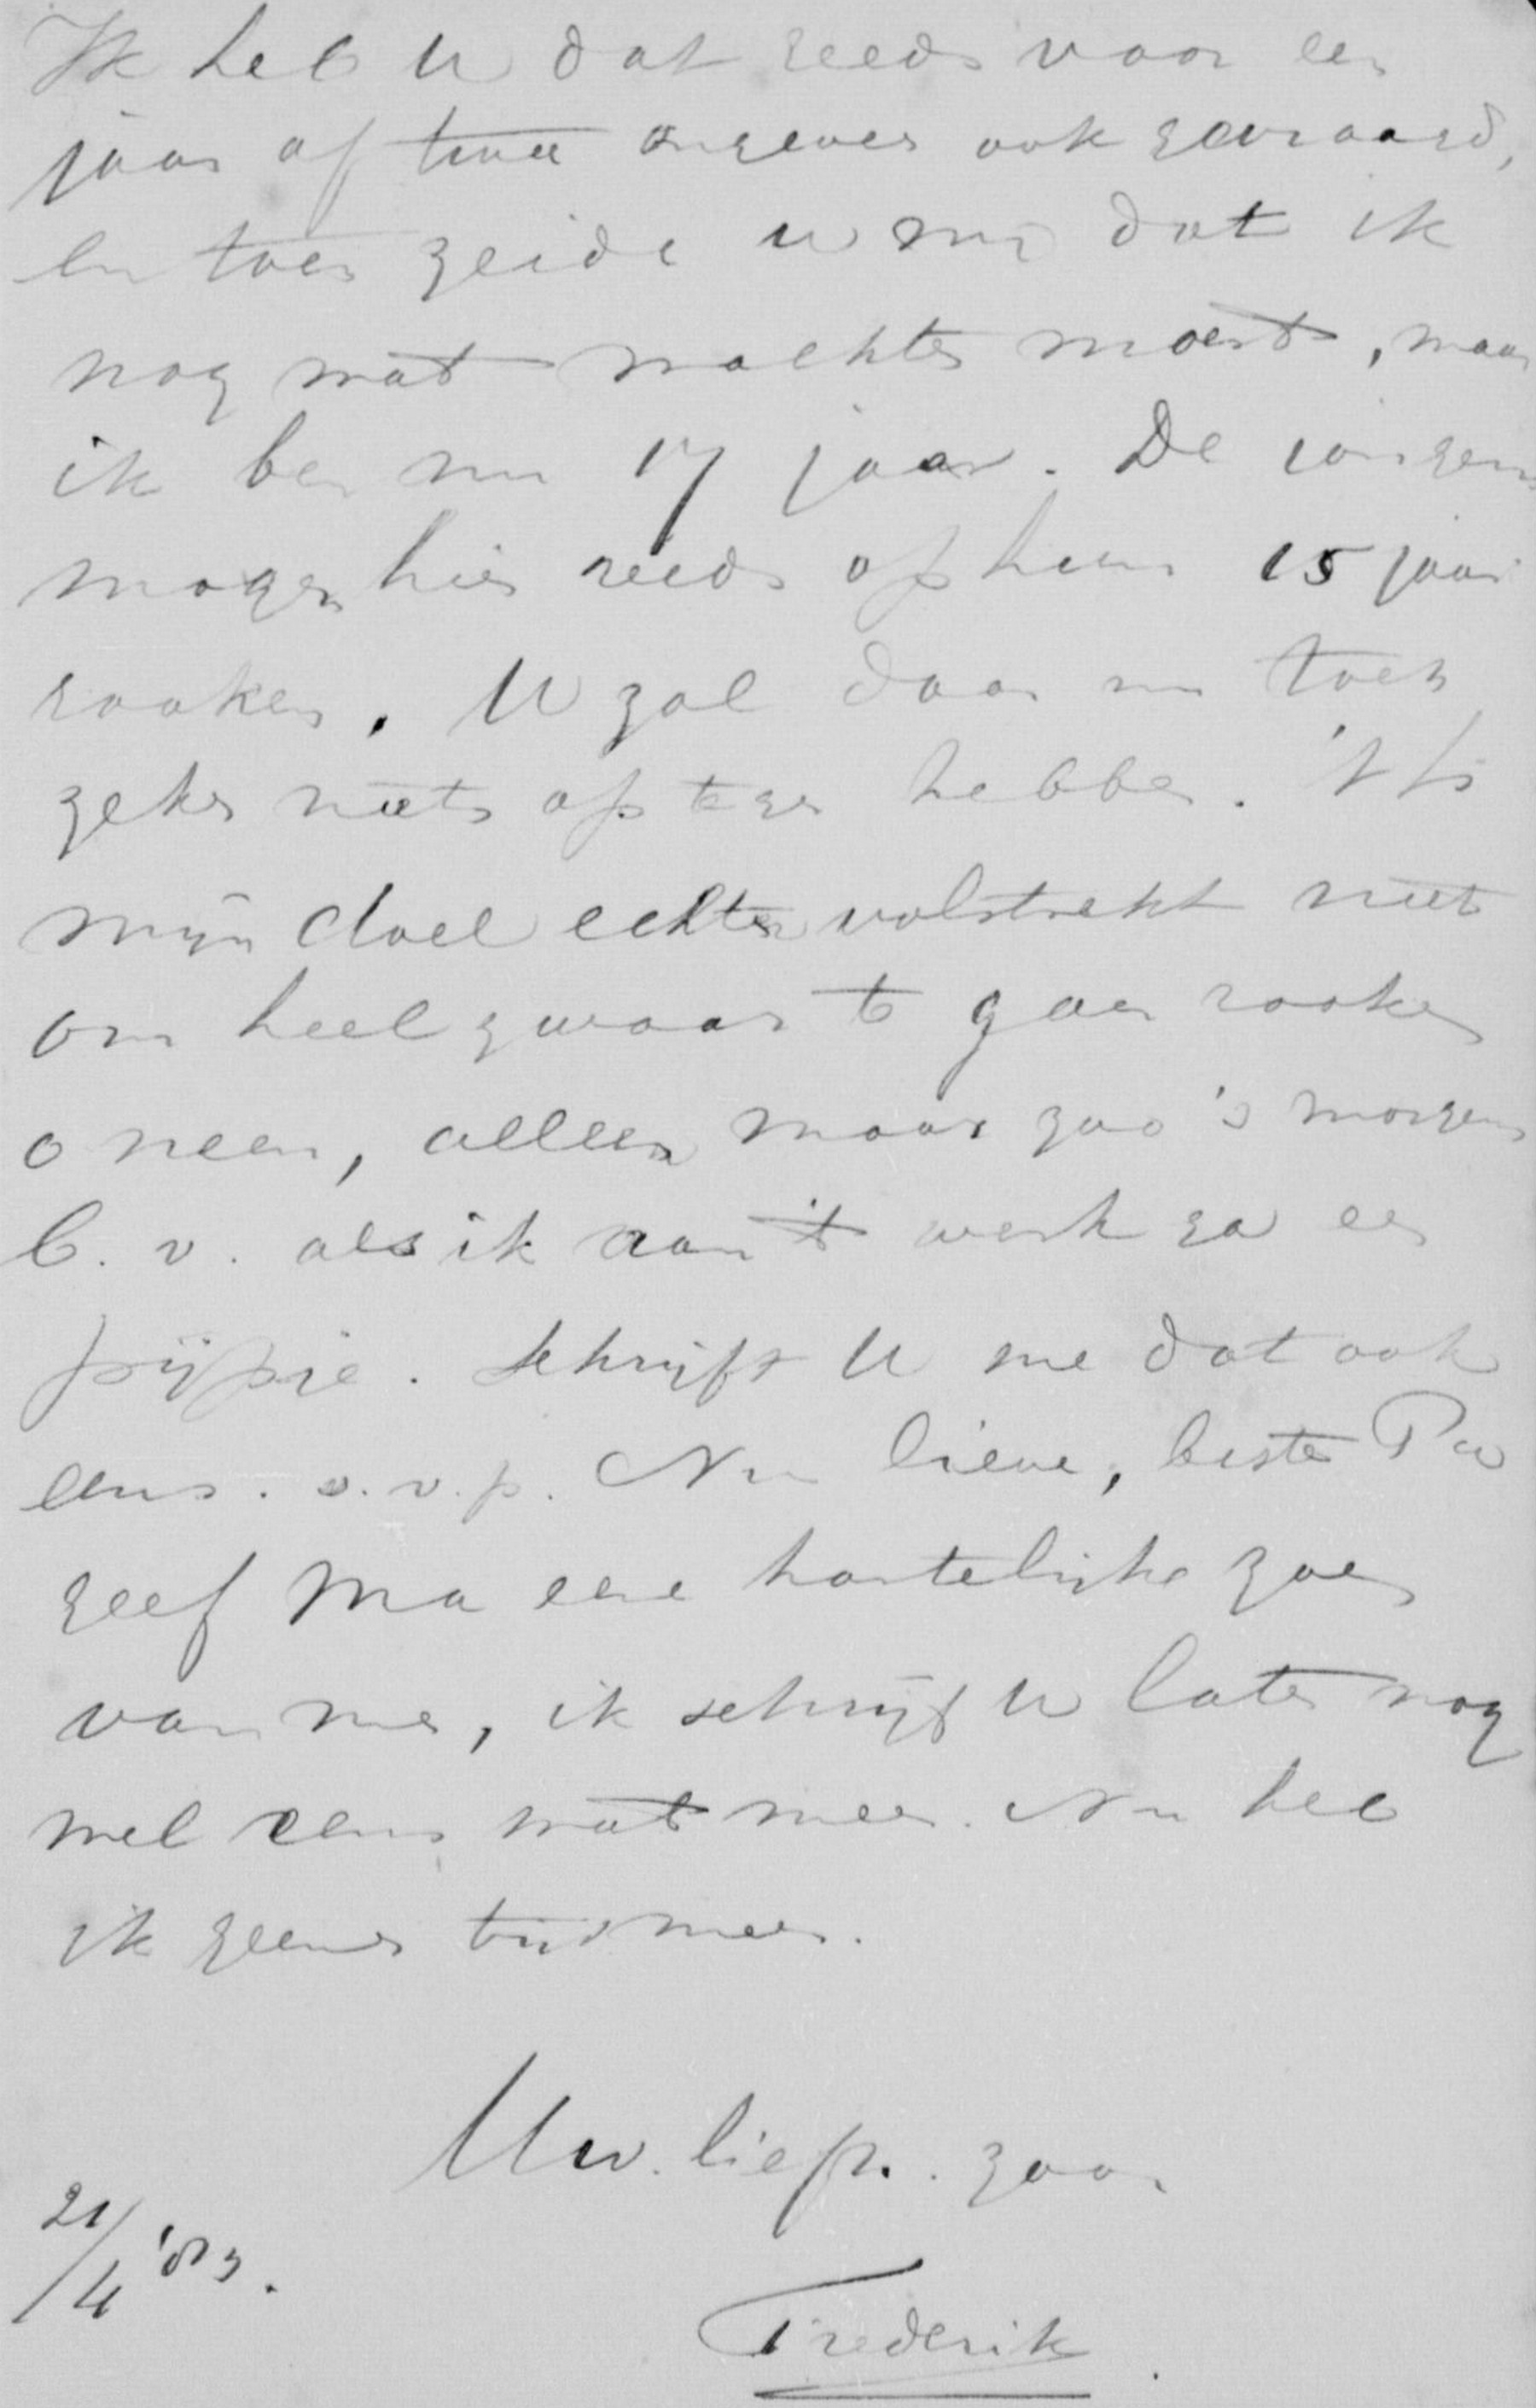 Ik heb U dat reeds voor een
jaar of twee ongeveer ook gevraagd,
en toen zeide u mij dat ik
nog wat wachten moest, maar
ik ben nu 17 jaar. De jongens
mogen hier reeds op hun 15 jaar
rooken. U zal daar nu toch
zeker niets op tegen hebben. 't Is
mijn doel echter volstrekt niet
om heel zwaar te gaan rooken
o neen, alleen maar zoo 's morgens
b. v. als ik aan 't werk ga een
pijpje. Schrijft U me dat ook
eens. s.v.p. Nu lieve, beste Pa
geef Ma eene hartelijke zoen
van me, ik schrijf U later nog
wel eens wat meer. Nu heb
ik geenen tijd meer.
Uw. liefh. zoon
21/4 '83.
Frederik.